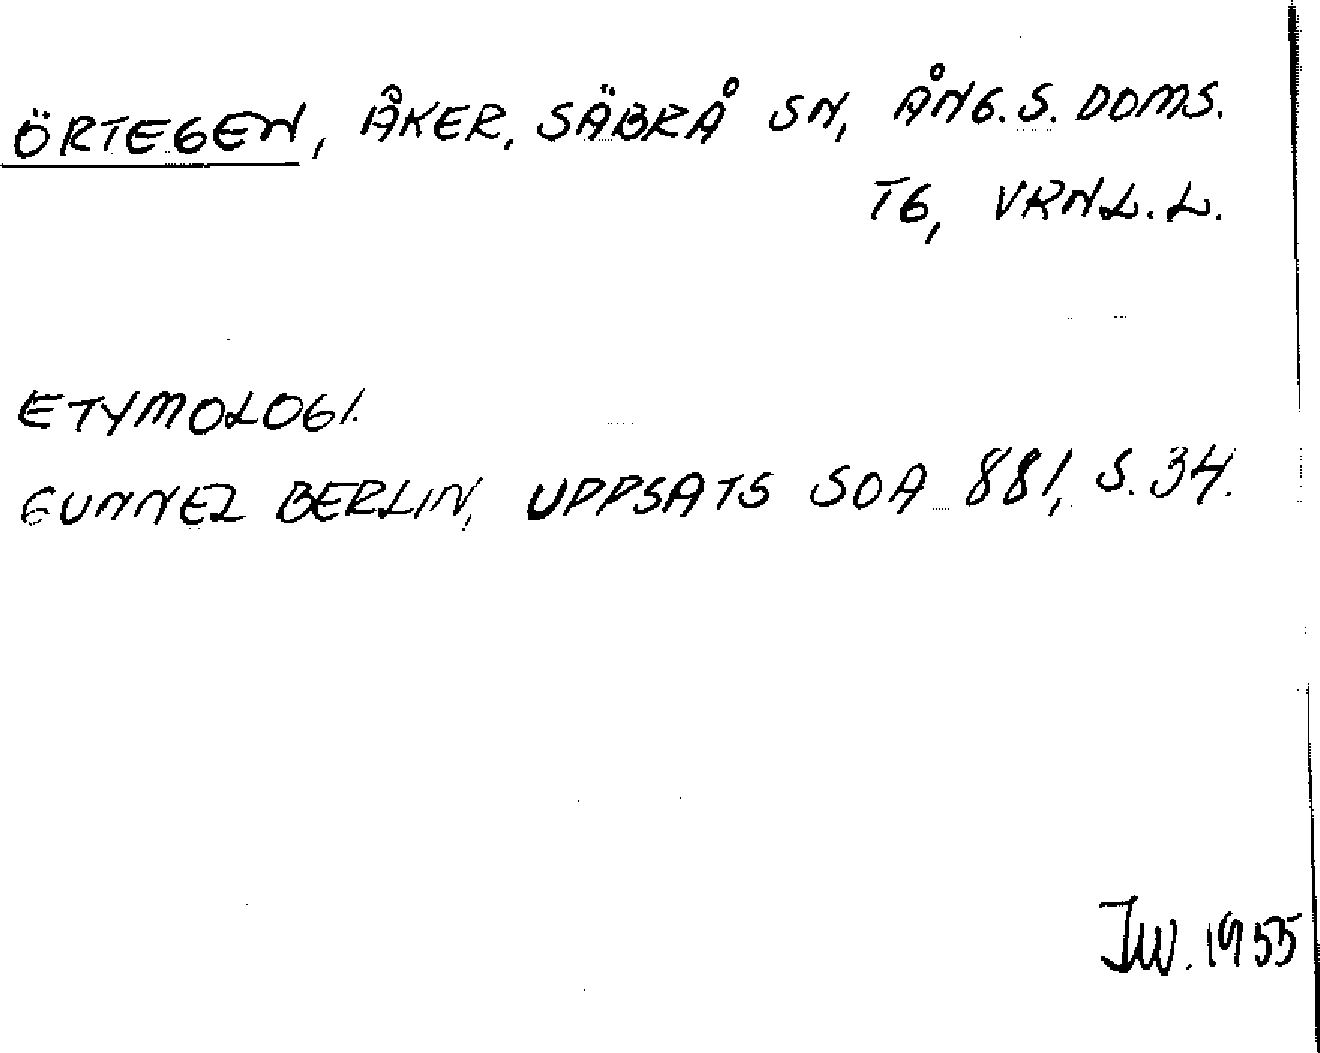 ÖRTEGEN, ÅKER, SÄBRÅ SN, ÅNG. S. DOMS.
TG, VRNL. L.
ETYMOLOGI.
GUNNEL BERLIN, UPPSATS SOA 881, S. 34.
JW. 1955